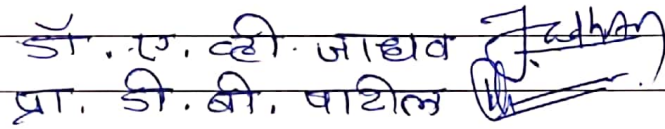 डॉ. ए. व्ही. जाधव
प्रा. डी. बी. पाटील